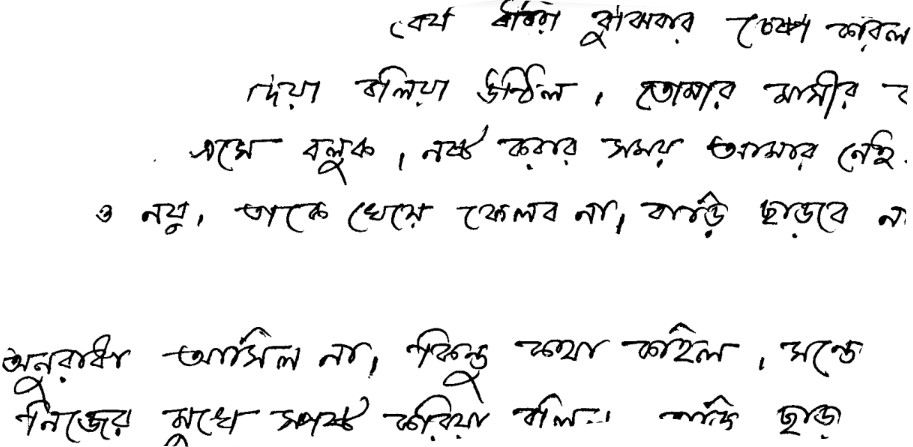 বুঝিবার চেষ্টা করিল
দিয়া বলিয়া উঠিল, তোমার মাসীর
এসে বলুক, নষ্ট করার সময় আমার নেই
ও নয়, তাকে খেয়ে ফেলব না, বাড়ি ছাড়বে না
অনুরাধা আসিল না, কিন্তু কথা কহিল, সন্তে
নিজের মুখে স্পষ্ট করিয়া বলি বাড়ি ছাড়